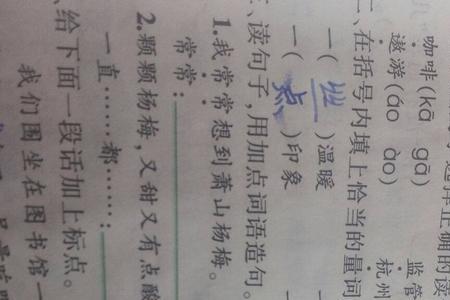 选择正确的读
咖啡(kā gā) 监管
遨游(áo ào) 杭州
二、在括号内填上恰当的量词
一(丝)温暖 一
一(点)印象 一
三、读句子,用加点词语造句。
1.我常常想到萧山杨梅。
常常:
2.颗颗杨梅,又甜又有点酸
一直……都……:
、给下面一段话加上标点。
我们围坐在图书馆一